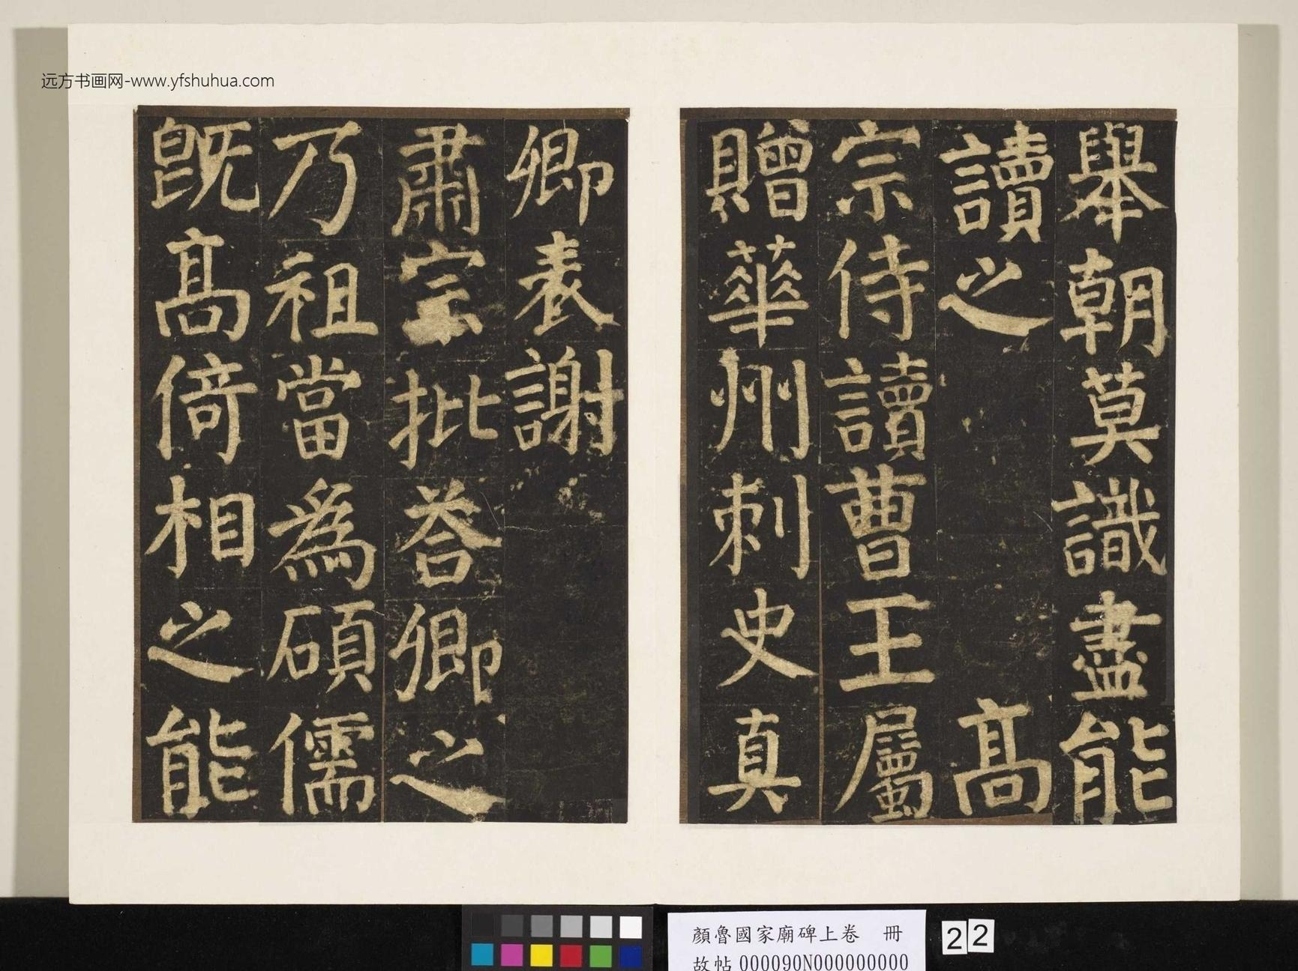 远方书画网-www.yfshuhua.com
舉朝莫識盡能
讀之　高
宗侍讀曹王屬
贈華州刺史真
卿表謝
肅宗批荅卿之
乃祖當為碩儒
旣高倚相之能
顏魯國家廟碑上卷　冊
故帖 000090N000000000
22